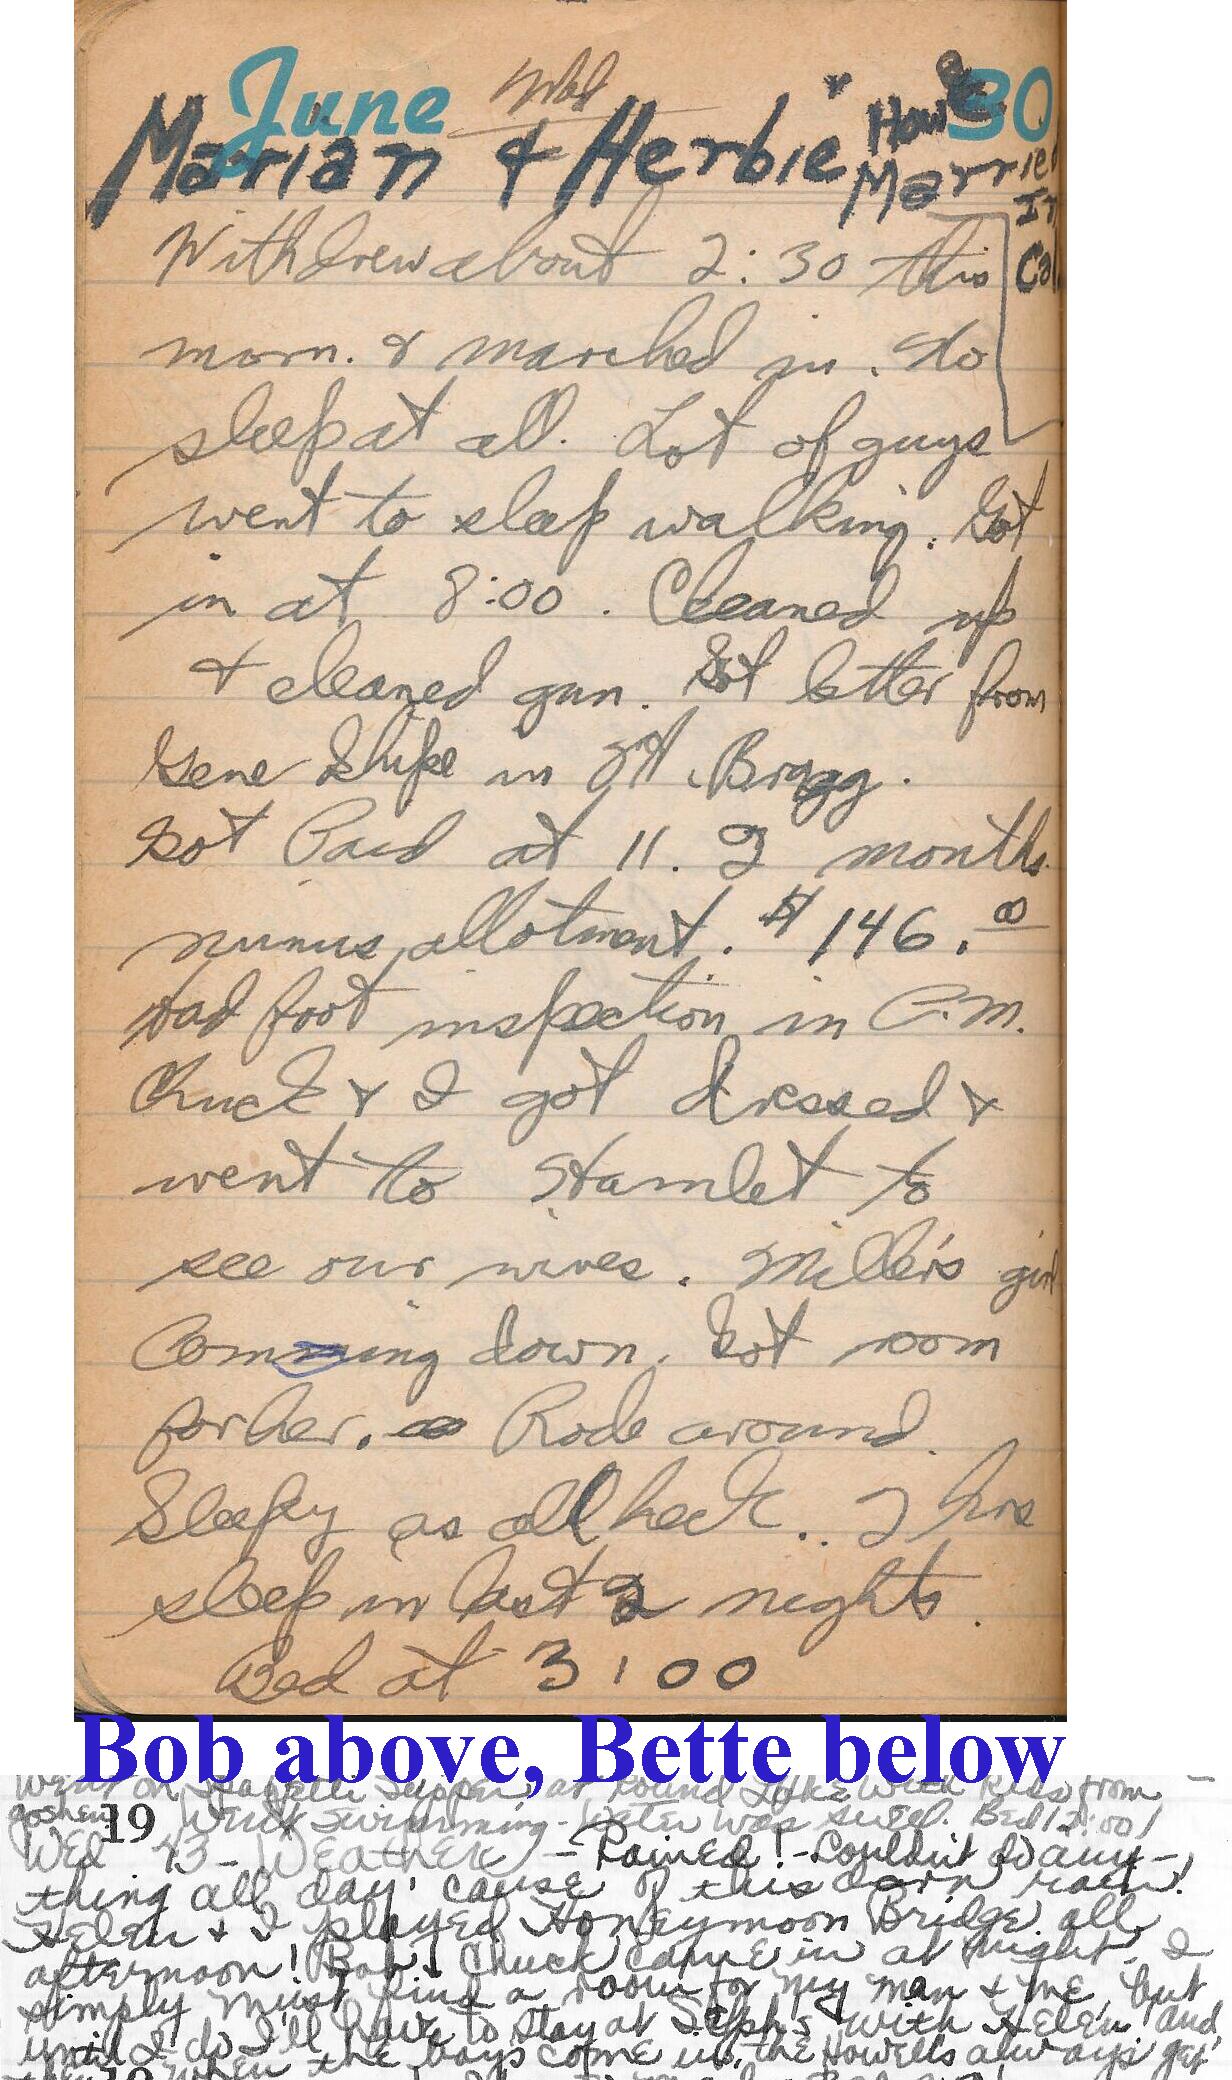 June Wed 30
Marian & Herbie Howe
Married
In
Cal
Withdrew about 2:30 this
morn. & marched in. No
sleep at all. Lot of guys
went to sleep walking. Got
in at 8:00. Cleaned up
& cleaned gun. Got letter from
Gene in Ft. Bragg.
Got Paid at 11. 2 months
minus allotment. $146.00
Had foot inspection in P.M.
Chuck & I got dressed &
went to Hamlet to
see our wives. Miller's girl
Comming down. Got room
for her. Rode around.
Sleepy as all heck. 2 hrs
sleep in last 2 nights.
Bed at 3:00
Bob above, Bette below
Went on Supper at Round Lake with kids from
Goshen. Went swimming - Water was swell. Bed 12:00!
19
Wed 43 - Weather - Rained! - Couldn't do any-
thing all day 'cause of this darn rain!
Helen & I played Honeymoon Bridge all
afternoon! Bob & Chuck came in at night. I
simply must find a room for my man & me but
until I do I'll have to stay at Selph's with Helen and
when the boys come up, the Howells always get